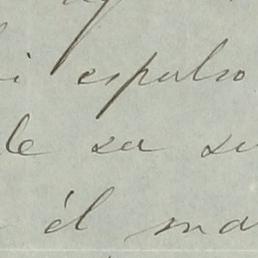 i espulso
de su su
él ma